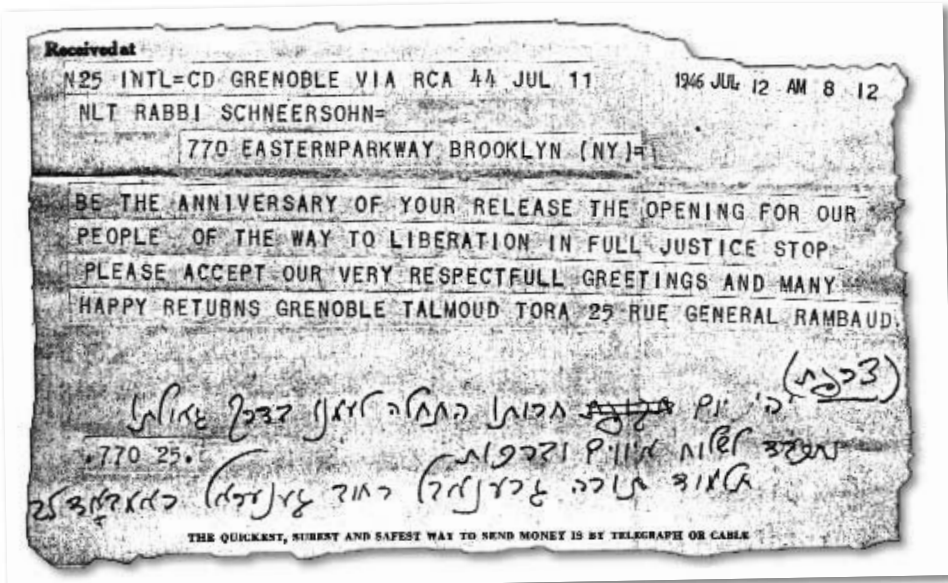 Received at
N25 INTL=CD GRENOBLE VIA RCA 44 JUL 11 1946 JUL 12 AM 8 12
NLT RABBI SCHNEERSOHN=
770 EASTERNPARKWAY BROOKLYN (NY)=
BE THE ANNIVERSARY OF YOUR RELEASE THE OPENING FOR OUR
PEOPLE OF THE WAY TO LIBERATION IN FULL JUSTICE STOP
PLEASE ACCEPT OUR VERY RESPECTFULL GREETINGS AND MANY
HAPPY RETURNS GRENOBLE TALMOUD TORA 25 RUE GENERAL RAMBAUD.
(צרפת)
יהי יום חרותו התחלה לעמנו בדרך גאולתו
נתכבד לשלוח איווים וברכות
.770 25.
תלמוד תורה גרענאבל רחוב גענעראל ראמבאד 25
THE QUICKEST, SUREST AND SAFEST WAY TO SEND MONEY IS BY TELEGRAPH OR CABLE